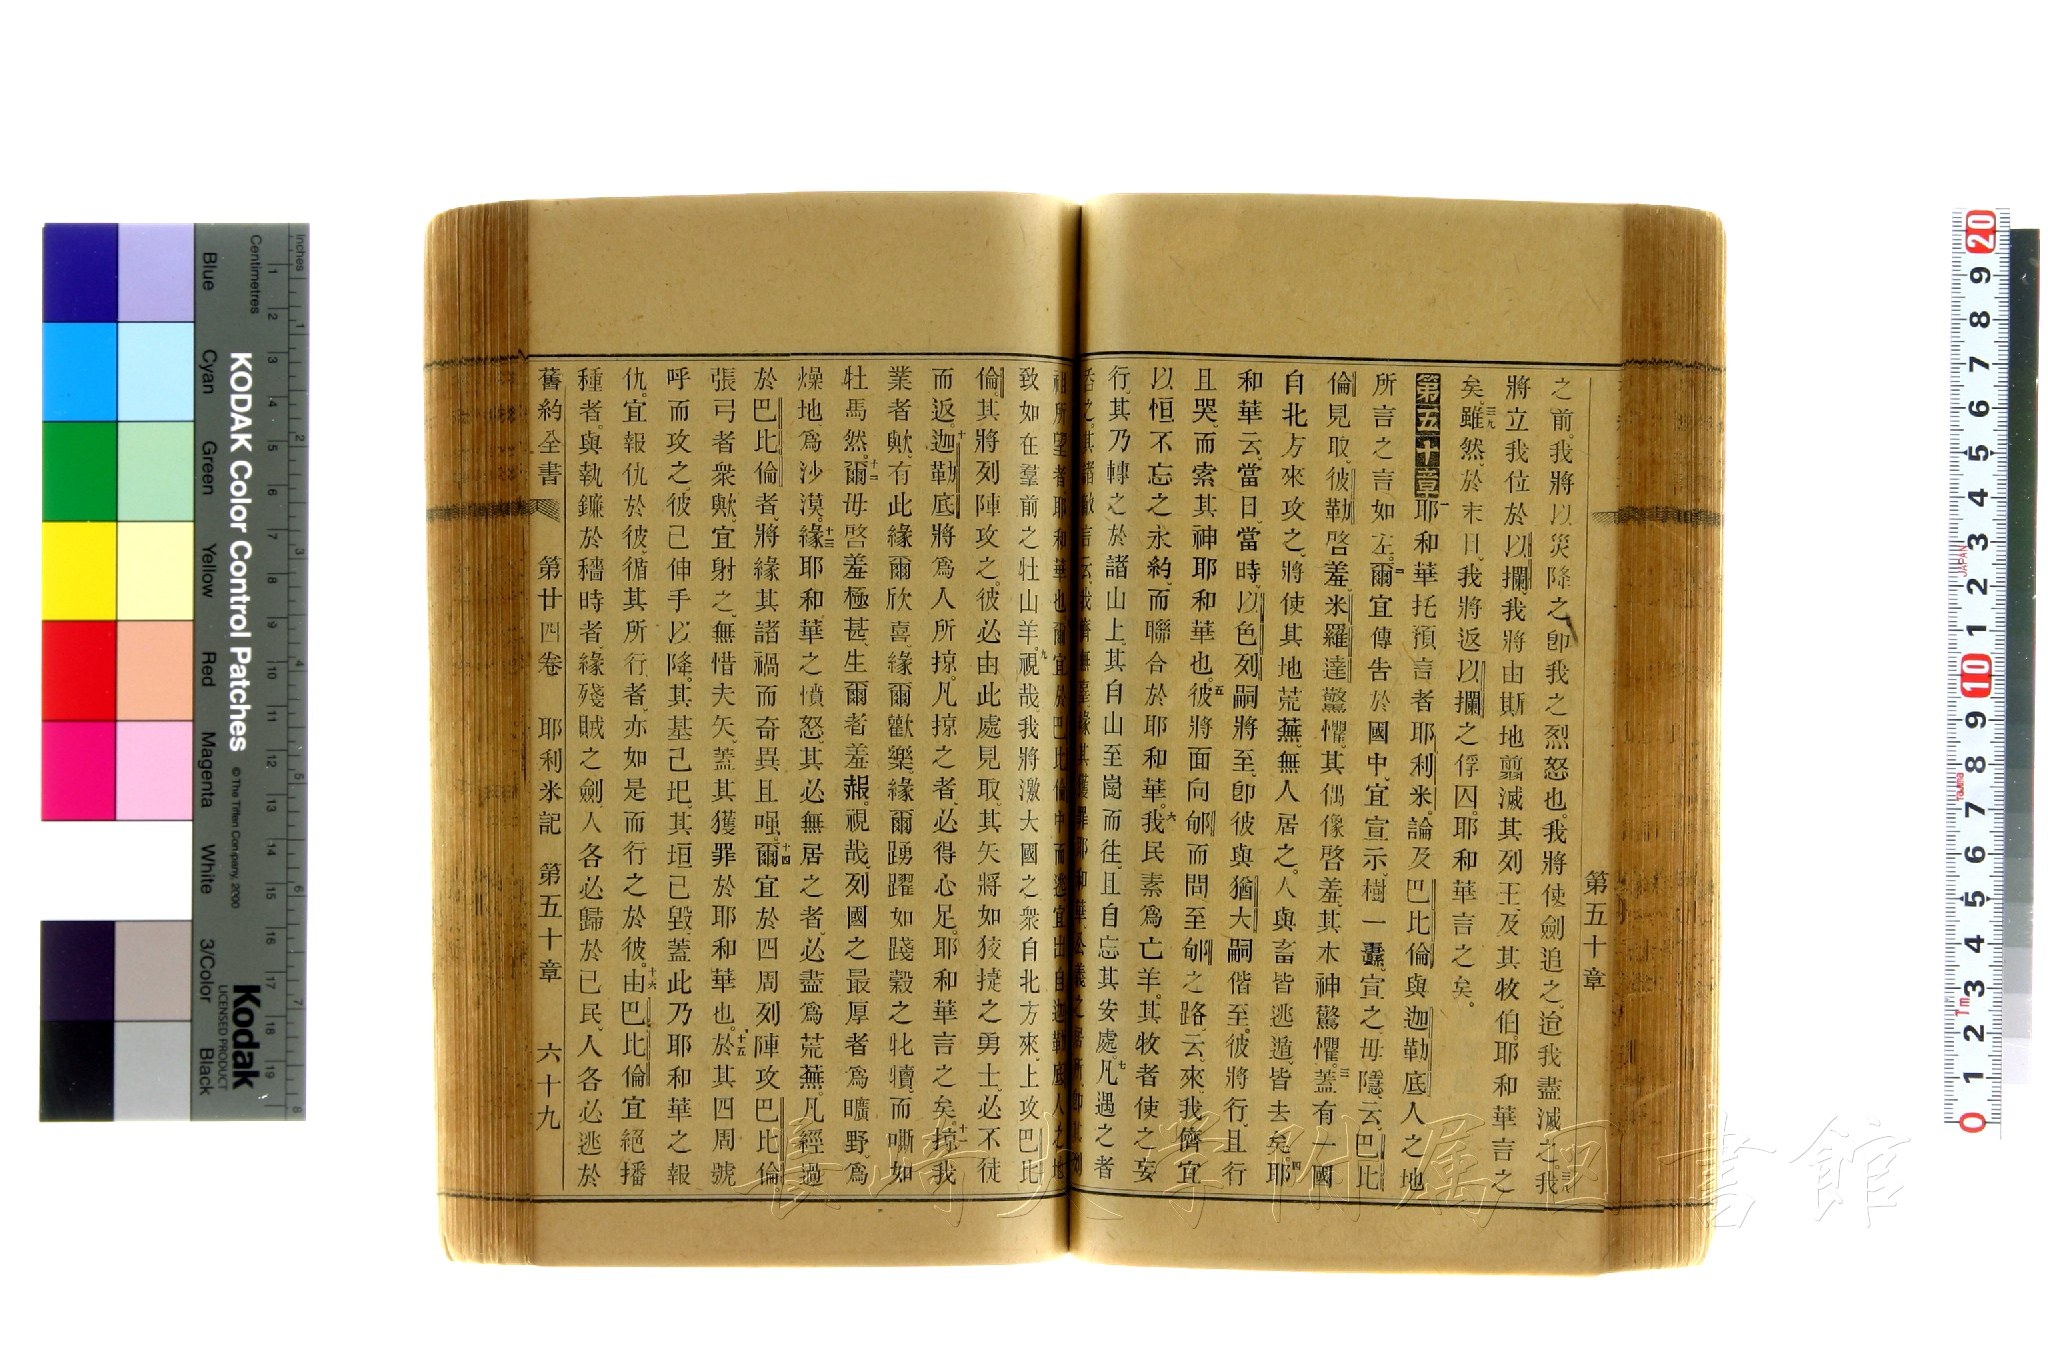 第五十章
之前。我將以災降之卽我之烈怒也。我將使劍追之、迨我盡滅之。我
將立我位於以攔、我將由斯地翦滅其列王、及其牧伯。耶和華言之
矣。三九雖然、於末日、我將返以攔之俘囚。耶和華言之矣。
第五十章 一耶和華托預言者耶利米、論及巴比倫與迦勒底人之地
所言之言如左。二爾宜傳告於國中、宜宣示、樹一纛、宣之、毋隱、云、巴比
倫見取、彼勒啓羞、米羅達驚懼、其偶像啓羞、其木神驚懼。三蓋有一國
自北方來攻之、將使其地荒蕪、無人居之。人與畜皆逃遁、皆去矣。四耶
和華云、當日、當時、以色列嗣將至、卽彼與猶大嗣偕至。彼將行、且行
且哭、而索其神耶和華也。五彼將面向郇而問至郇之路、云、來、我儕宜
以恒不忘之永約、而聯合於耶和華。六我民素爲亡羊。其牧者使之妄
行。其乃轉之於諸山上、其自山至崗而往、且自忘其安處。七凡遇之者
祖所望者耶和華也爾宜於巴比倫中而逃宜出自迦勒底人之地
致如在羣前之牡山羊。九視哉、我將激大國之衆自北方來、上攻巴比
倫。其將列陣攻之。彼必由此處見取。其矢將如狡捷之勇士、必不徒
而返。十迦勒底將爲人所掠。凡掠之者、必得心足。耶和華言之矣。十一掠我
業者歟、有此緣爾欣喜、緣爾歡樂、緣爾踴躍如踐穀之牝犢、而嘶如
牡馬然。十二爾毋啓羞極甚、生爾者羞赧。視哉、列國之最厚者爲曠野、爲
燥地、爲沙漠。十三緣耶和華之憤怒、其必無居之者、必盡爲荒蕪。凡經過
於巴比倫者、將緣其諸禍而奇異、且嗤。十四爾宜於四周列陣攻巴比倫。
張弓者衆歟、宜射之、無惜夫矢。蓋其獲罪於耶和華也。十五於其四周號
呼而攻之。彼已伸手以降。其基已圯、其垣已毀、蓋此乃耶和華之報
仇。宜報仇於彼、循其所行者、亦如是而行之於彼。十六由巴比倫宜絕播
種者、與執鐮於穡時者、緣殘賊之劍、人各必歸於己民、人各必逃於
舊約全書 第廿四卷 耶利米記 第五十章 六十九
長崎大学附属図書館
KODAK Color Control Patches
© The Tiffen Company, 2000
Kodak
LICENSED PRODUCT
Inches
Centimetres
Blue
Cyan
Green
Yellow
Red
Magenta
White
3/Color
Black